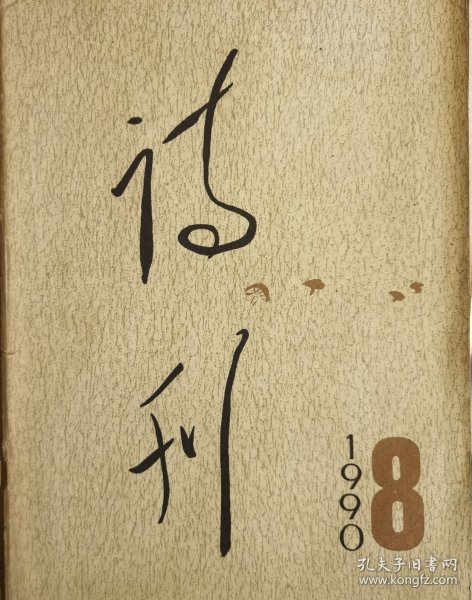 诗刊
1990
8
孔夫子旧书网
www.kongfz.com